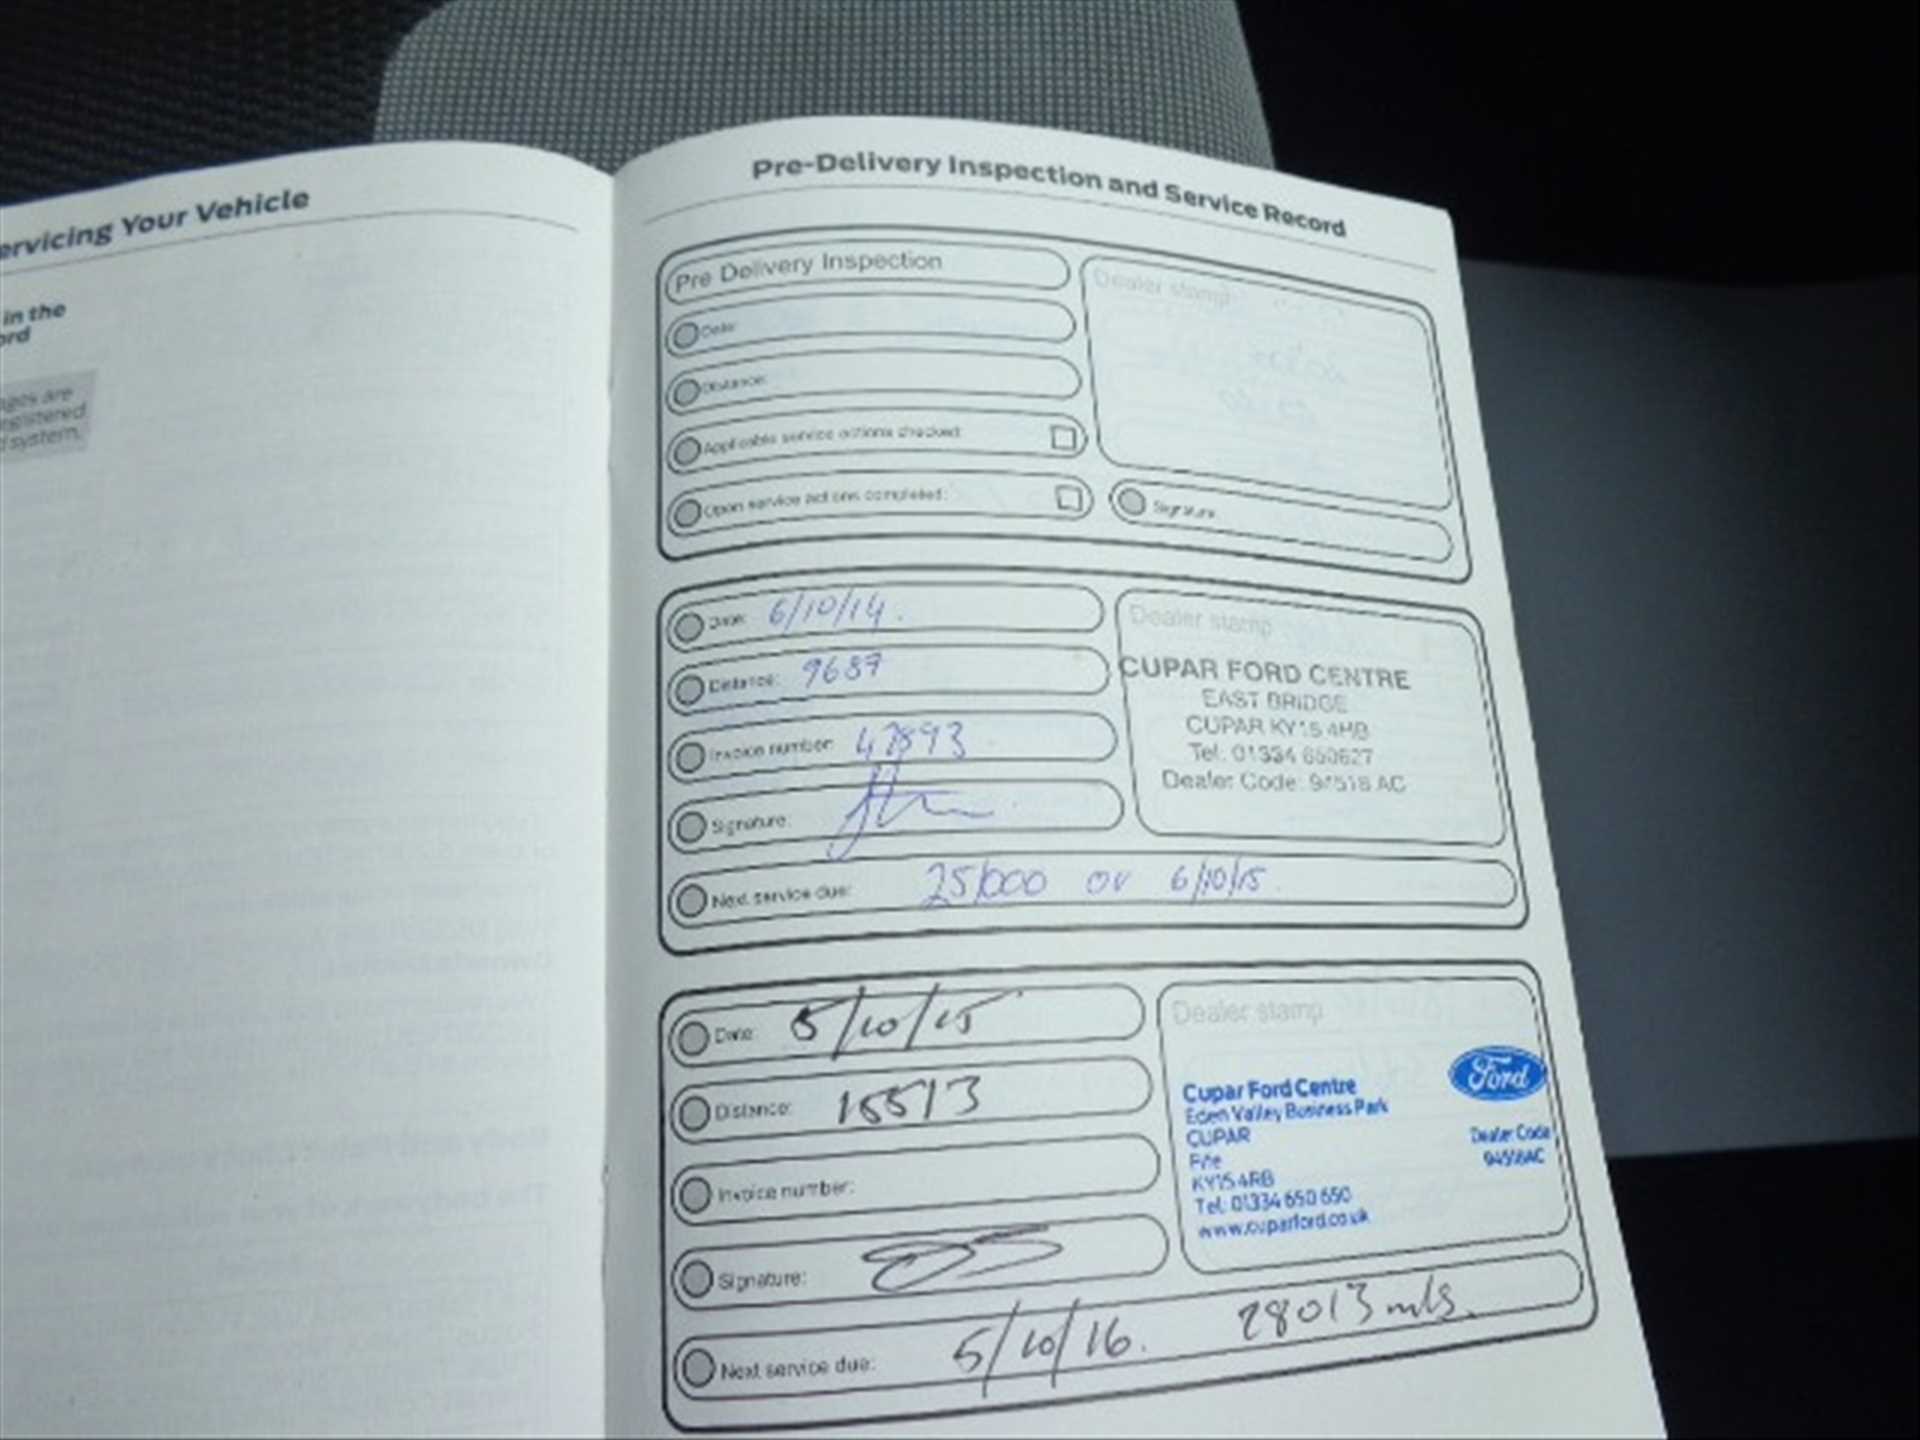 Servicing Your Vehicle
in the
ages are
registered
system,
Pre-Delivery Inspection and Service Record
Pre Delivery Inspection
Dealer stamp
Date:
Distance:
Applicable service actions checked:
Open service actions completed:
Signature:
Date: 6/10/14.
Distance: 9687
Invoice number: 47893
Signature:
Next service due: 25,000 or 6/10/15.
Dealer stamp
CUPAR FORD CENTRE
EAST BRIDGE
CUPAR KY15 4HB
Tel: 01334 650627
Dealer Code: 94518 AC
Date: 5/10/15
Distance: 15513
Invoice number:
Signature:
Next service due: 5/10/16. 28013 mls.
Dealer stamp
Ford
Cupar Ford Centre
Eden Valley Business Park
CUPAR
Fife
KY15 4RB
Tel: 01334 650 650
www.cuparford.co.uk
Dealer Code
94518AC